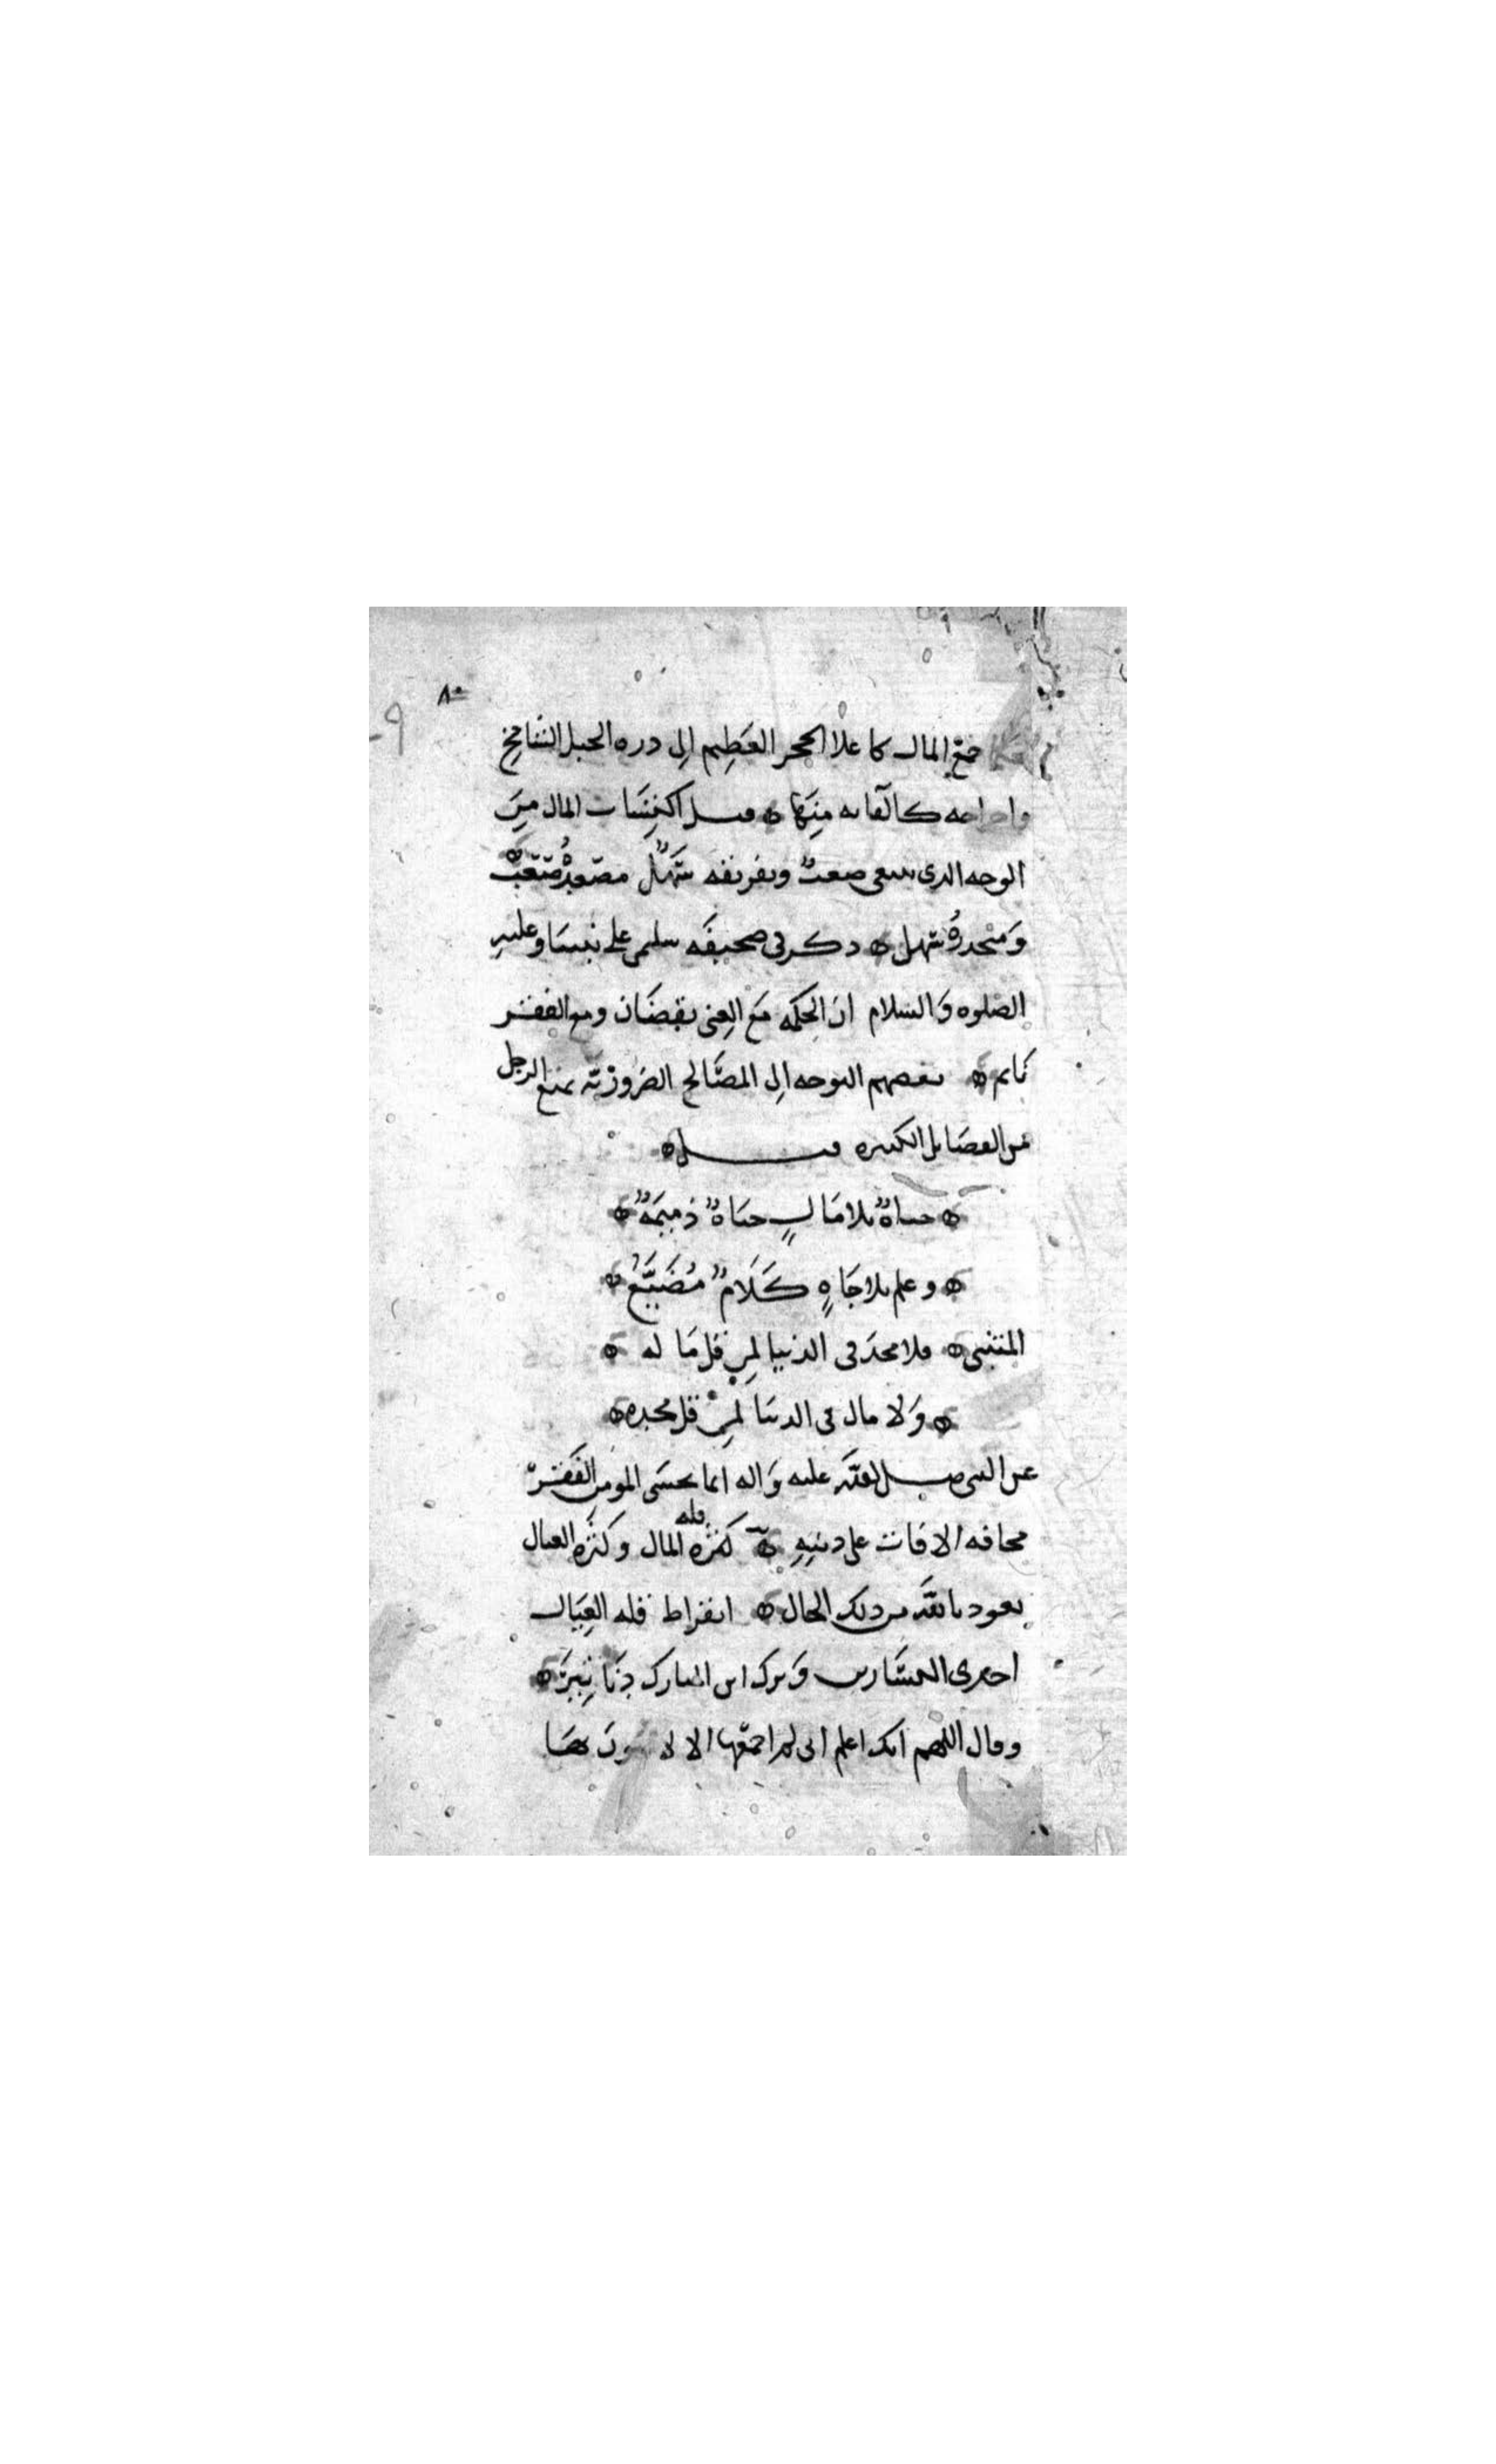 ٨٠
جمع المال كاعلاء الحجر العظيم الى دروه الجبل الشامخ
واخراجه كالقايه منها ه قيل اكتساب المال من
الوجه الذي ينبغي صعبٌ وتفريقه سَهْلٌ مصْعَدُهُ صَعْبٌ
وَمنحدرهُ سَهل ه ذكر في صحيفه سليمن على نبينا وعليه
الصلوه وَالسلام ان الحكمه مَع الغِنى يقضان ومع الفقر
نايم ه بعضهم التوجه الى المصَالح الضَروريّه يمنع الرجل
من الفضايل الكبيره قيل ه
ه حياةٌ بلا مَالٍ حيَاةٌ ذميمَةٌ ه
ه وعلم بلا جَاهٍ كَلَامٌ مُضَيَّعُ ه
المتنبى ه فلا مجدَ في الدنيا لمن قل مَا له ه
ه وَلا مال في الدنيَا لمنْ قل مجده ه
عن النبي صلى الله عليه وَاله انما يخشَى المومن الفقرَ
مخافه الافات على دينِهِ ه قله المال وكثره العيال
نعوذ بالله من ذلك الحال ه ابقراط قله العِيَال
احدى اليسَارين وَترك ابن المبارك دنَانِيرَ ه
وقال اللهم انك اعلم انى لم اجمعها الا لاصون بهَا